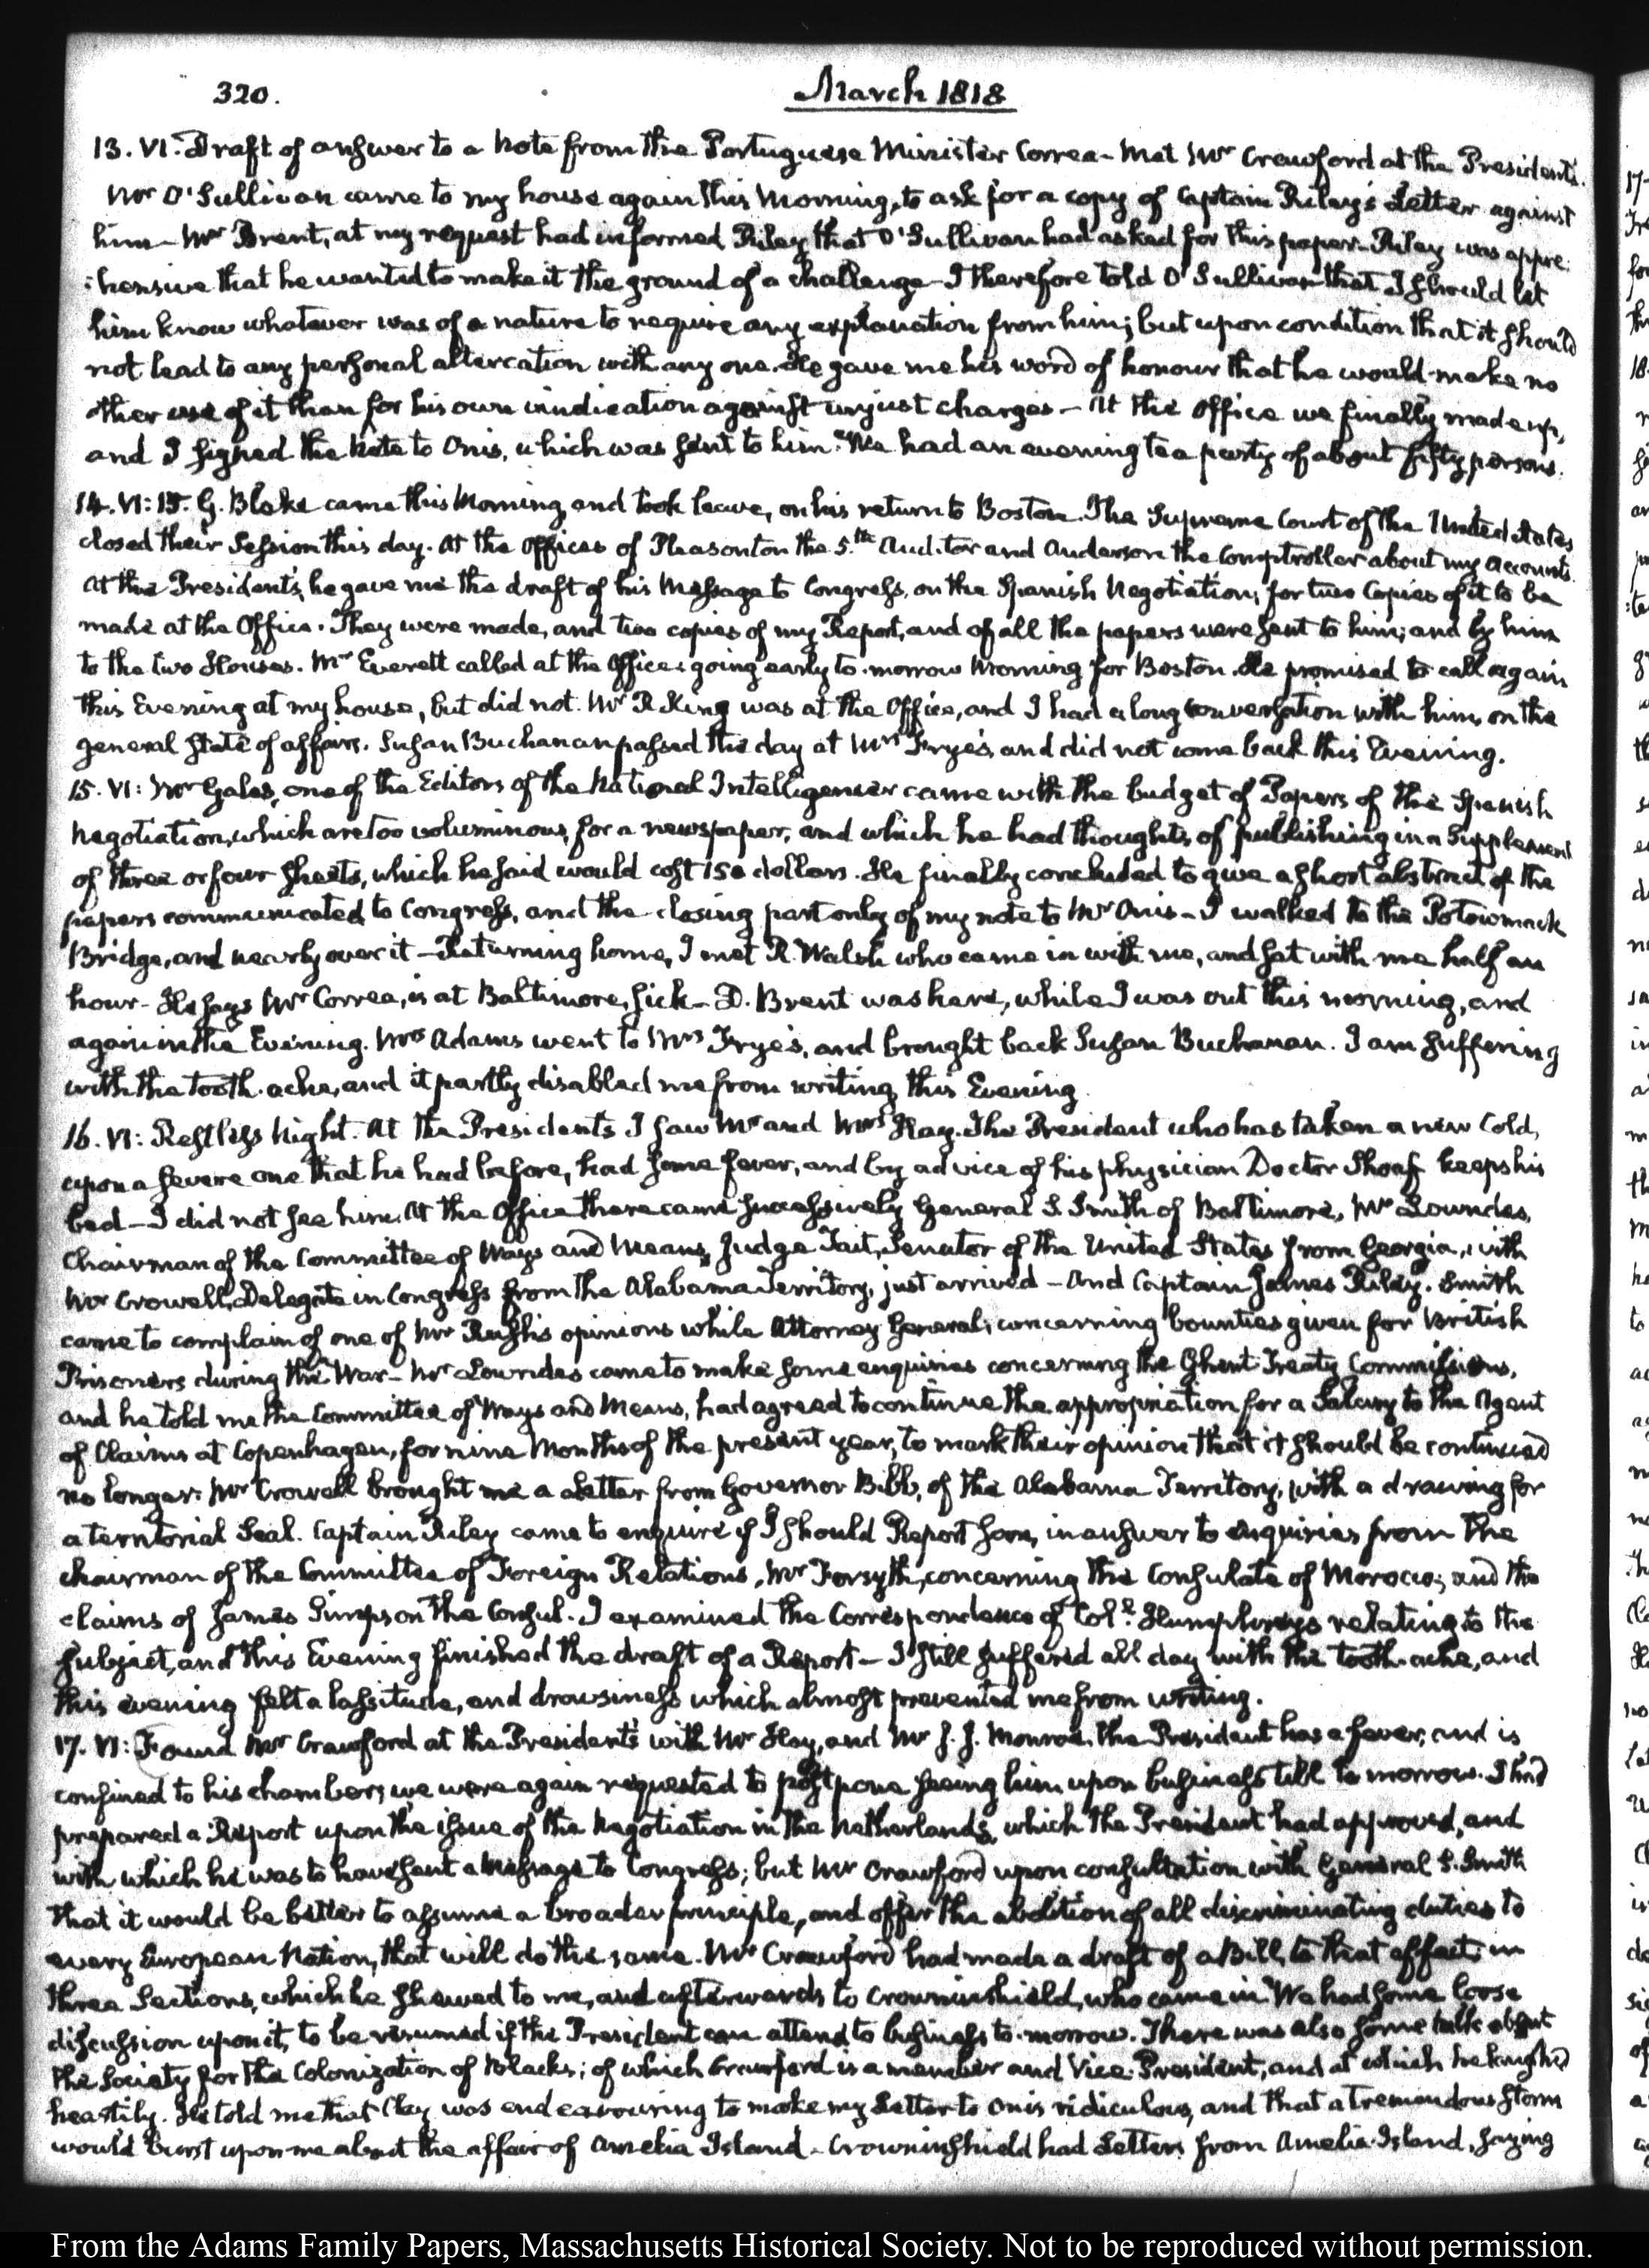 320.
March 1818
13. VI: Draft of answer to a Note from the Portuguese Minister Correa - Met Mr Crawford at the President's.
Mr O'Sullivan came to my house again this Morning, to ask for a copy of Captain Riley's Letter against
him - Mr Brent, at my request had informed Riley that O'Sullivan had asked for this paper - Riley was appre:
:hensive that he wanted to make it the ground of a challenge - I therefore told O'Sullivan that I should let
him know whatever was of a nature to require any explanation from him; but upon condition that it should
not lead to any personal altercation with any one. He gave me his word of honour that he would make no
other use of it than for his own vindication against unjust charges - At the Office we finally made up,
and I signed the Note to Onis, which was sent to him. We had an evening tea party of about fifty persons.
14. VI: 15. G. Blake came this Morning, and took leave, on his return to Boston. The Supreme Court of the United States
closed their Session this day. At the Offices of Pleasonton the 5.th Auditor and Anderson the Comptroller about my Accounts.
At the President's, he gave me the draft of his Message to Congress, on the Spanish Negotiation, for two Copies of it to be
made at the Office. They were made, and two copies of my Report, and of all the papers were sent to him; and by him
to the two Houses. Mr Everett called at the Office: going early to-morrow Morning for Boston. He promised to call again
this Evening at my house, but did not. Mr R. King was at the Office, and I had a long conversation with him, on the
general state of affairs. Susan Buchanan passed the day at Mrs Frye's, and did not come back this Evening.
15. VI: Mr Gales, one of the Editors of the National Intelligencer came with the budget of Papers of the Spanish
Negotiation, which are too voluminous, for a newspaper, and which he had thoughts of publishing in a Supplement
of three or four sheets, which he said would cost 150 dollars. He finally concluded to give a short abstract of the
papers communicated to Congress, and the closing part only of my note to Mr Onis - I walked to the Potowmack
Bridge, and nearly over it - Returning home, I met R. Walsh who came in with me, and sat with me half an
hour - He says Mr Correa, is at Baltimore, sick - D. Brent was here, while I was out this morning, and
again in the Evening. Mrs Adams went to Mrs Frye's, and brought back Susan Buchanan. I am suffering
with the tooth-ache, and it partly disabled me from writing this Evening.
16. VI: Restless Night. At the President's I saw Mr and Mrs Hay. The President who has taken a new Cold,
upon a severe one that he had before, had some fever, and by advice of his physician Doctor Shoaf keeps his
bed - I did not see him. At the Office there came successively General S. Smith of Baltimore, Mr Lowndes,
Chairman of the Committee of Ways and Means, Judge Tait, Senator of the United States from Georgia, with
Mr Crowell, Delegate in Congress from the Alabama Territory, just arrived - And Captain James Riley. Smith
came to complain of one of Mr Rush's opinions while Attorney General, concerning bounties given for British
Prisoners during the War - Mr Lowndes came to make some enquiries concerning the Ghent Treaty Commissions,
and he told me the Committee of Ways and Means, had agreed to continue the appropriation for a Salary to the Agent
of Claims at Copenhagen, for nine Months of the present year, to mark their opinion that it should be continued
no longer. Mr Crowell brought me a Letter from Governor Bibb, of the Alabama Territory, with a drawing for
a territorial Seal. Captain Riley came to enquire if I should Report soon, in answer to enquiries from the
chairman of the Committee of Foreign Relations, Mr Forsyth, concerning the Consulate of Morocco; and the
claims of James Simpson the Consul. I examined the Correspondence of Col.l Humphreys relating to the
subject, and this Evening finished the draft of a Report - I still suffered all day with the tooth-ache, and
this evening felt a lassitude, and drowsiness which almost prevented me from writing.
17. VI: Found Mr Crawford at the President's with Mr Hay, and Mr J. J. Monroe. The President has a fever, and is
confined to his chamber; we were again requested to postpone seeing him upon business till to morrow. I had
prepared a Report upon the issue of the Negotiation in the Netherlands, which the President had approved, and
with which he was to have sent a Message to Congress; but Mr Crawford upon consultation with General S. Smith
that it would be better to assume a broader principle, and offer the abolition of all discriminating duties to
every European Nation, that will do the same. Mr Crawford had made a draft of a Bill, to that effect, in
three Sections, which he shewed to me, and afterwards to Crowninshield, who came in. We had some loose
discussion upon it, to be resumed if the President can attend to business to-morrow. There was also some talk about
the Society for the Colonization of Blacks; of which Crawford is a member and Vice-President, and at which he laughed
heartily. He told me that Clay was endeavouring to make my Letter to Onis ridiculous, and that a tremendous storm
would burst upon me about the affair of Amelia Island - Crowninshield had Letters from Amelia Island, saying
From the Adams Family Papers, Massachusetts Historical Society. Not to be reproduced without permission.